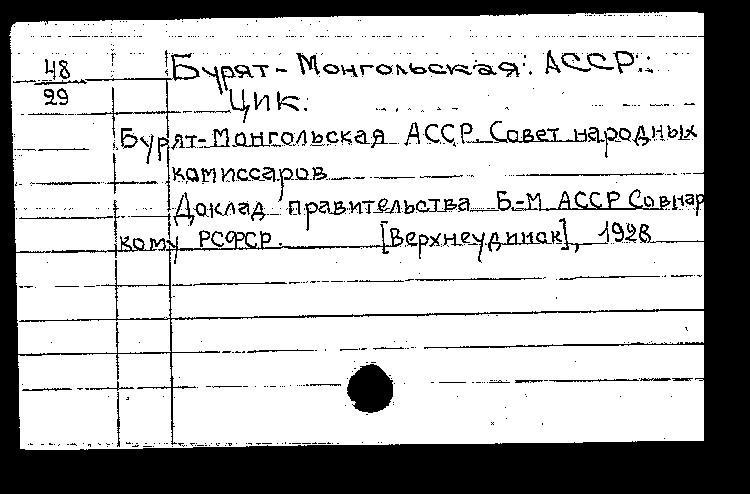 48
29
Бурят-Монгольская. АССР.
ЦИК.
Бурят-Монгольская АССР. Совет народных
комиссаров
Доклад правительства Б.-М АССР Совнар
кому РСФСР. [Верхнеудинск], 1928